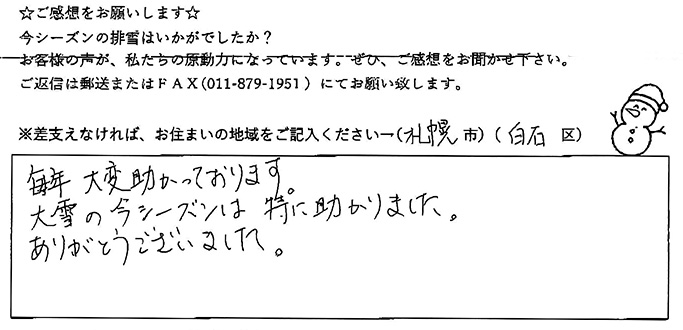 ☆ご感想をお願いします☆
今シーズンの排雪はいかがでしたか？
お客様の声が、私たちの原動力になっています。ぜひ、ご感想をお聞かせ下さい。
ご返信は郵送またはＦＡＸ(011-879-1951）にてお願い致します。
※差支えなければ、お住まいの地域をご記入ください→(札幌 市）( 白石 区）
毎年 大変助かっております。
大雪の今シーズンは 特に助かりました。
ありがとうございました。